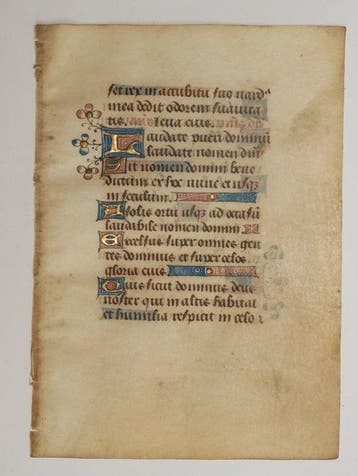 set rex in accubitu suo nard
mea dedit odorem suavita
tis. leva eius. 
Laudate pueri dominū
laudate nomen dm̄
Sit nomen domini bene
dictum ex hoc nunc et usqȝ
in seculum.
A solis ortu usqȝ ad occasū
laudabile nomen domini.
Excelsus super omnes gen
tes dominus et super celos
gloria eius.
Quis sicut dominus deus
noster qui in altis habitat
et humilia respicit in celo ⁊